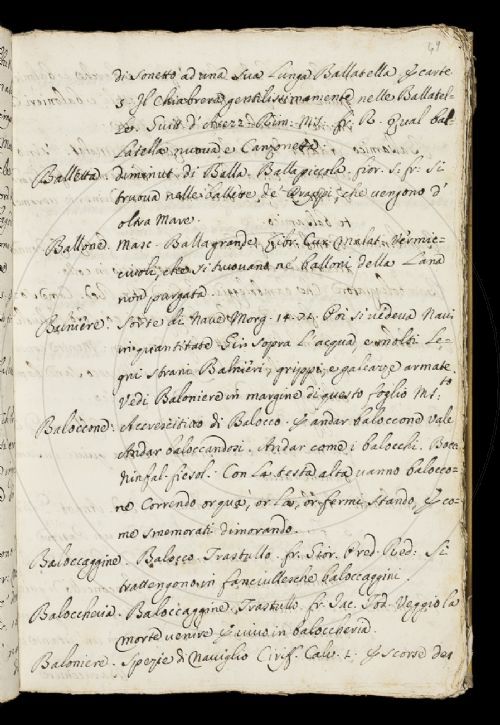 49
di Sonetto ad una sua Lunga Ballatella, p carte
5 Il Chiabrera gentilissimamente nelle Ballatel-
le. Guitt. d'Arezz. Rim. M.S. fr. R. Qual bal
Latella nuova e Canzonetta
Balletta. diminut. di Balla. Balla piccola. fior. S. fr. Si
truova nelle ballette de' Drappi, che vengono d'
oltra Mare.
Ballone. Masc. Balla grande. Libr. Cur. Malat. Vermic-
ciuoli, che si truovano ne' balloni della Lana
non purgata
Balniere. Sorte di Nave Morg. 14. 74. Poi si vedeva Navi
in quantitate Gir sopra L'acqua, e molti Le-
gni strani Balnieri, grippi, e galeazze armate.
Vedi Baloniere in margine di questo foglio M.S.to
Baloccone. Accrescitivo di Balocco. p andar baloccone vale
Andar baloccandosi. Andar come i balocchi. Bocc.
Ninfal. fiesol. Con La testa alta vanno balocco-
ne Correndo or qua, or la, or fermi stando, p co-
me smemorati dimorando.
Baloccaggine. Balocco. Trastullo. fr. Gior. Pred. Red. Si
trattengono in fanciullesche baloccaggini.
Baloccheria. Baloccaggine. Trastullo. fr. Iac. Tod. Veggio la
morte venire p vivo in baloccheria.
Baloniere. Spezie di Naviglio Ciriff. Calv. 1. p scorse del